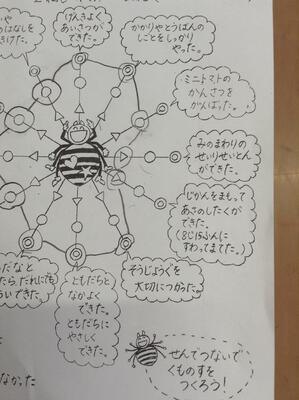 げんきよく
あいさつが
できた。
かかりやとうばんの
しごとをしっかり
やった。
ミニトマトの
かんさつを
がんばった。
みのまわりの
せいりせいとん
ができた。
じかんをまもって
あさのしたくが
できた。
(8じ15ふんに
すわってまてた。)
そうじようぐを
大切につかった。
ともだちと
なかよく
できた。
ともだちに
やさしく
できた。
せんでつないで
くものすを
つくろう!
なかった